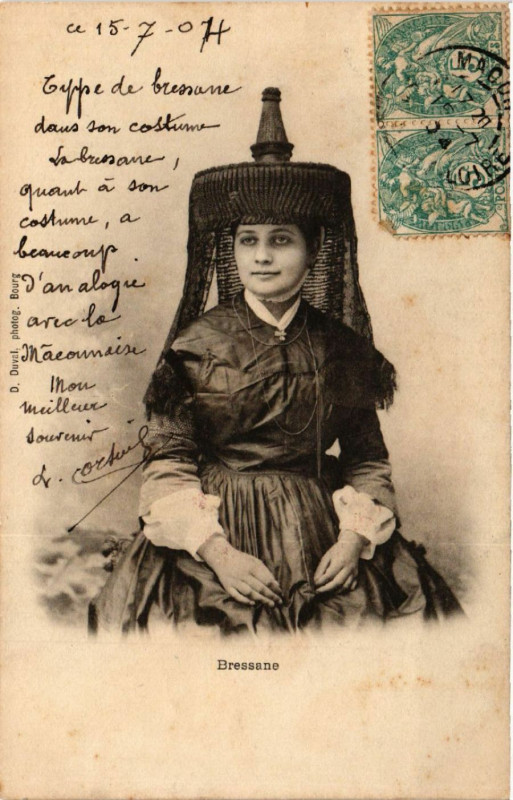 ce 15-7-04
Type de bressane
dans son costume
La bressane,
quant à son
costume, a
beaucoup
d'analogie
avec la
Mâconnaise
Mon
meilleur
souvenir
D. Duval, photog. Bourg
MACON
LOIRE
Bressane